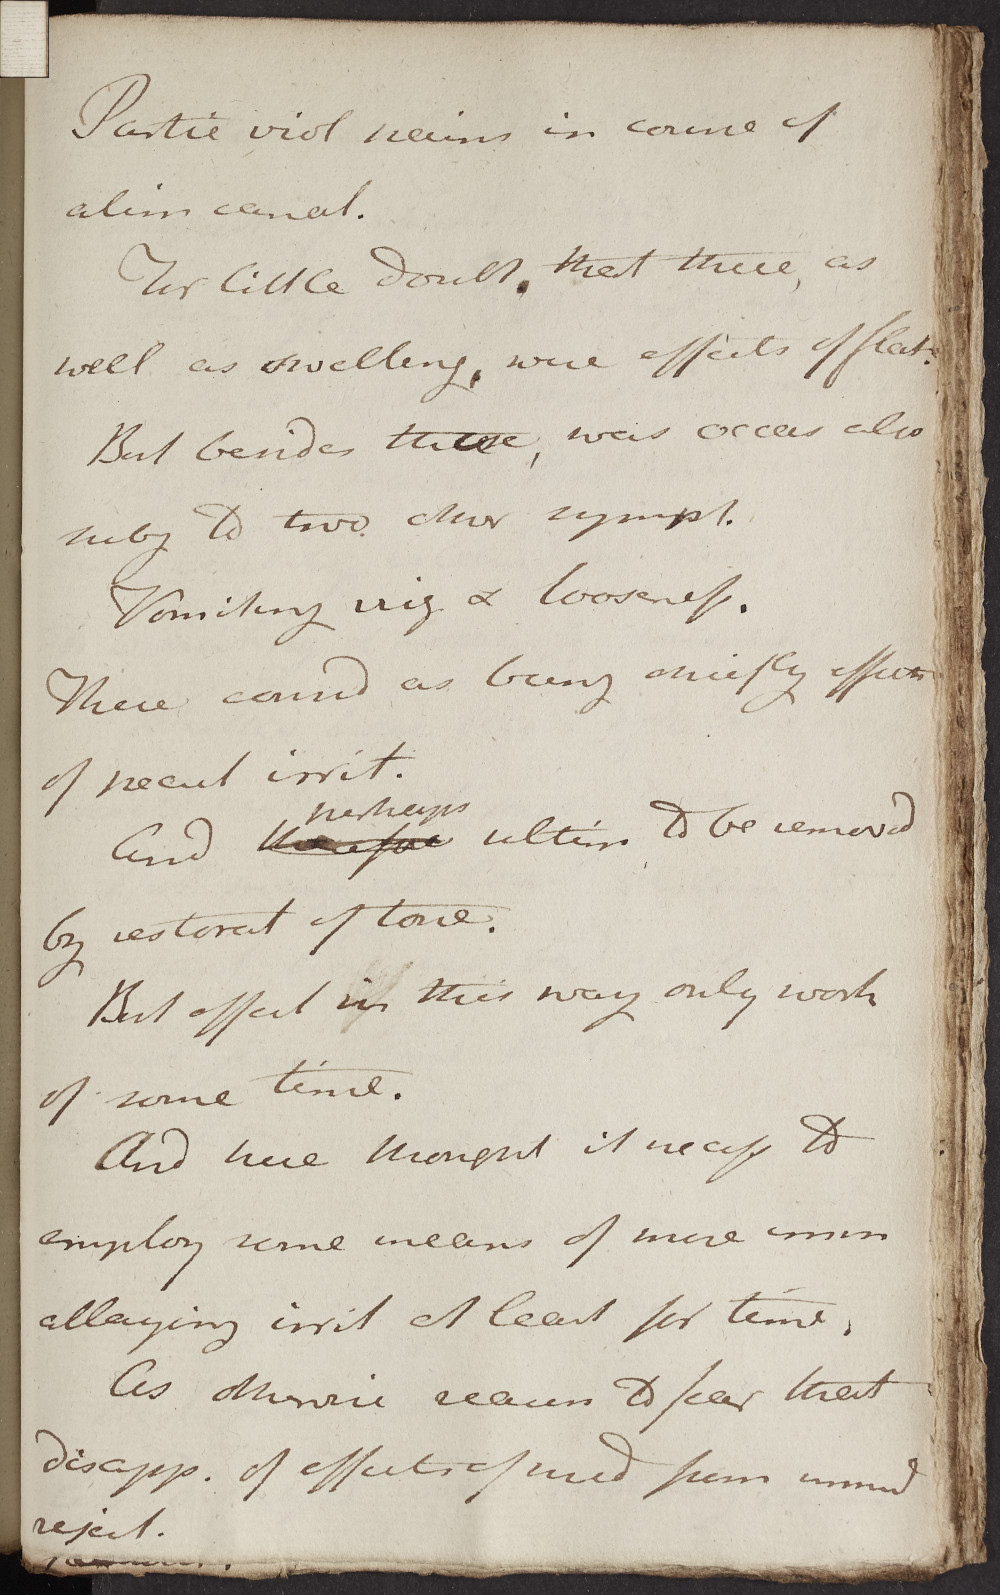 Partic viol pains in course of
alim canal.
Tis little doubt, that these, as
well as swelling, were effects of flat:
But besides these, was occas also
subj to two other sympt.
Vomiting viz & looseness.
These consid as being chiefly effects
of pecul irrit.
perhaps
And therefore ultim to be removd
by restorat of tone.
But effect in this way only work
of some time.
And here thought it necess to
employ some means of more imm
allaying irrit at least for time,
As otherwise reason to fear that
disapp. of effects of med from immed
reject.